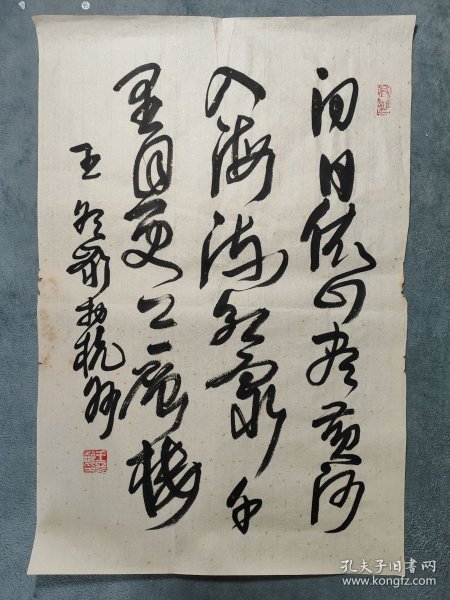 白日依山盡黄河
入海流欲窮千
里目更上一層樓
王冬齡於杭州
孔夫子旧书网
www.kongfz.com